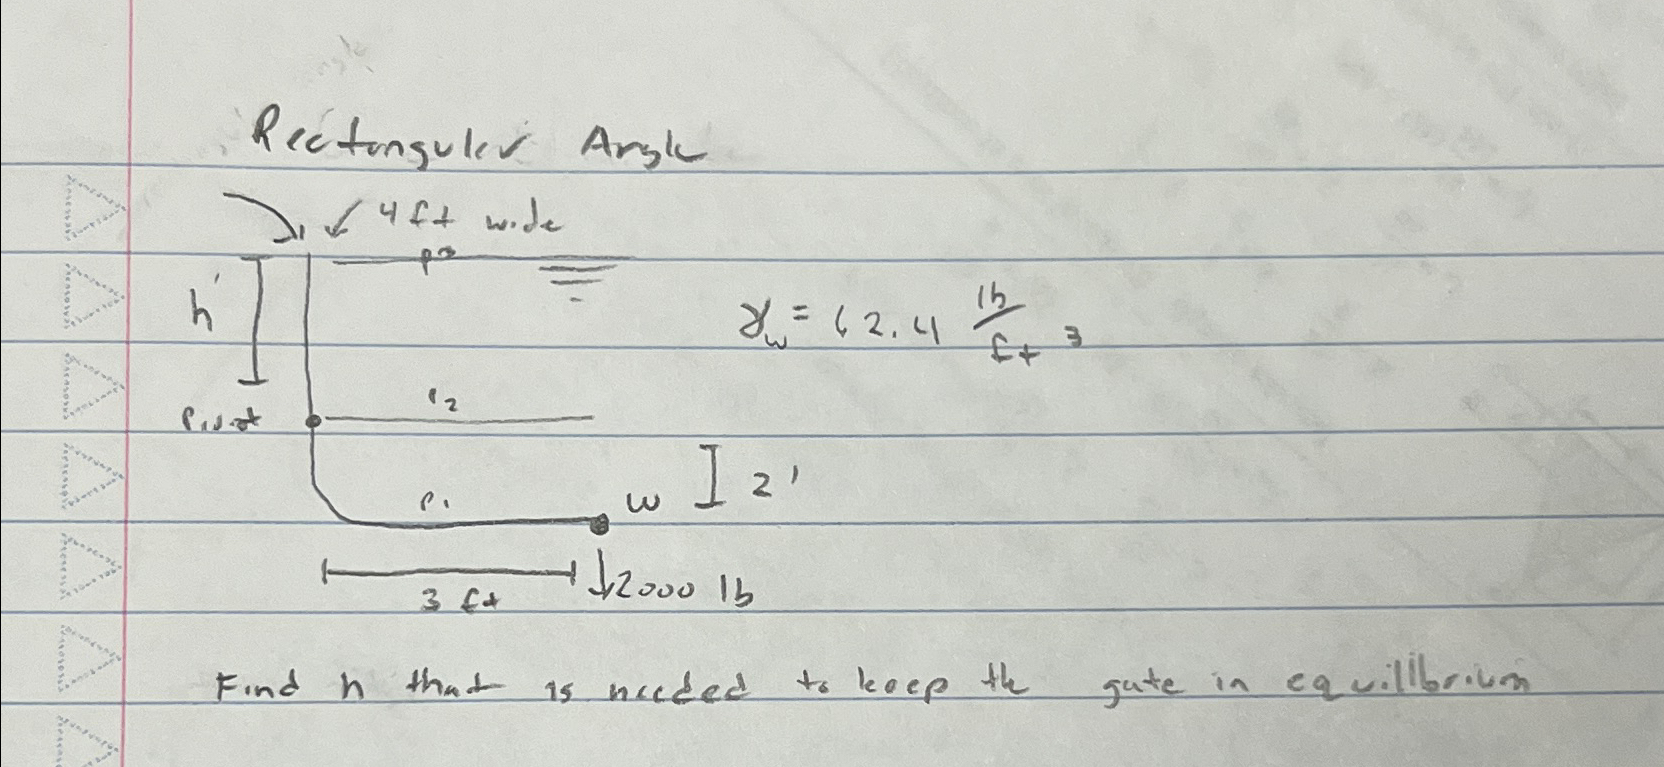 Rectangular Angle
4 ft wide
P3
h'
γw = 62.4 lb/ft 3
Pivot
P2
P1
w
2'
3 ft
2000 lb
Find h that is needed to keep the gate in equilibrium